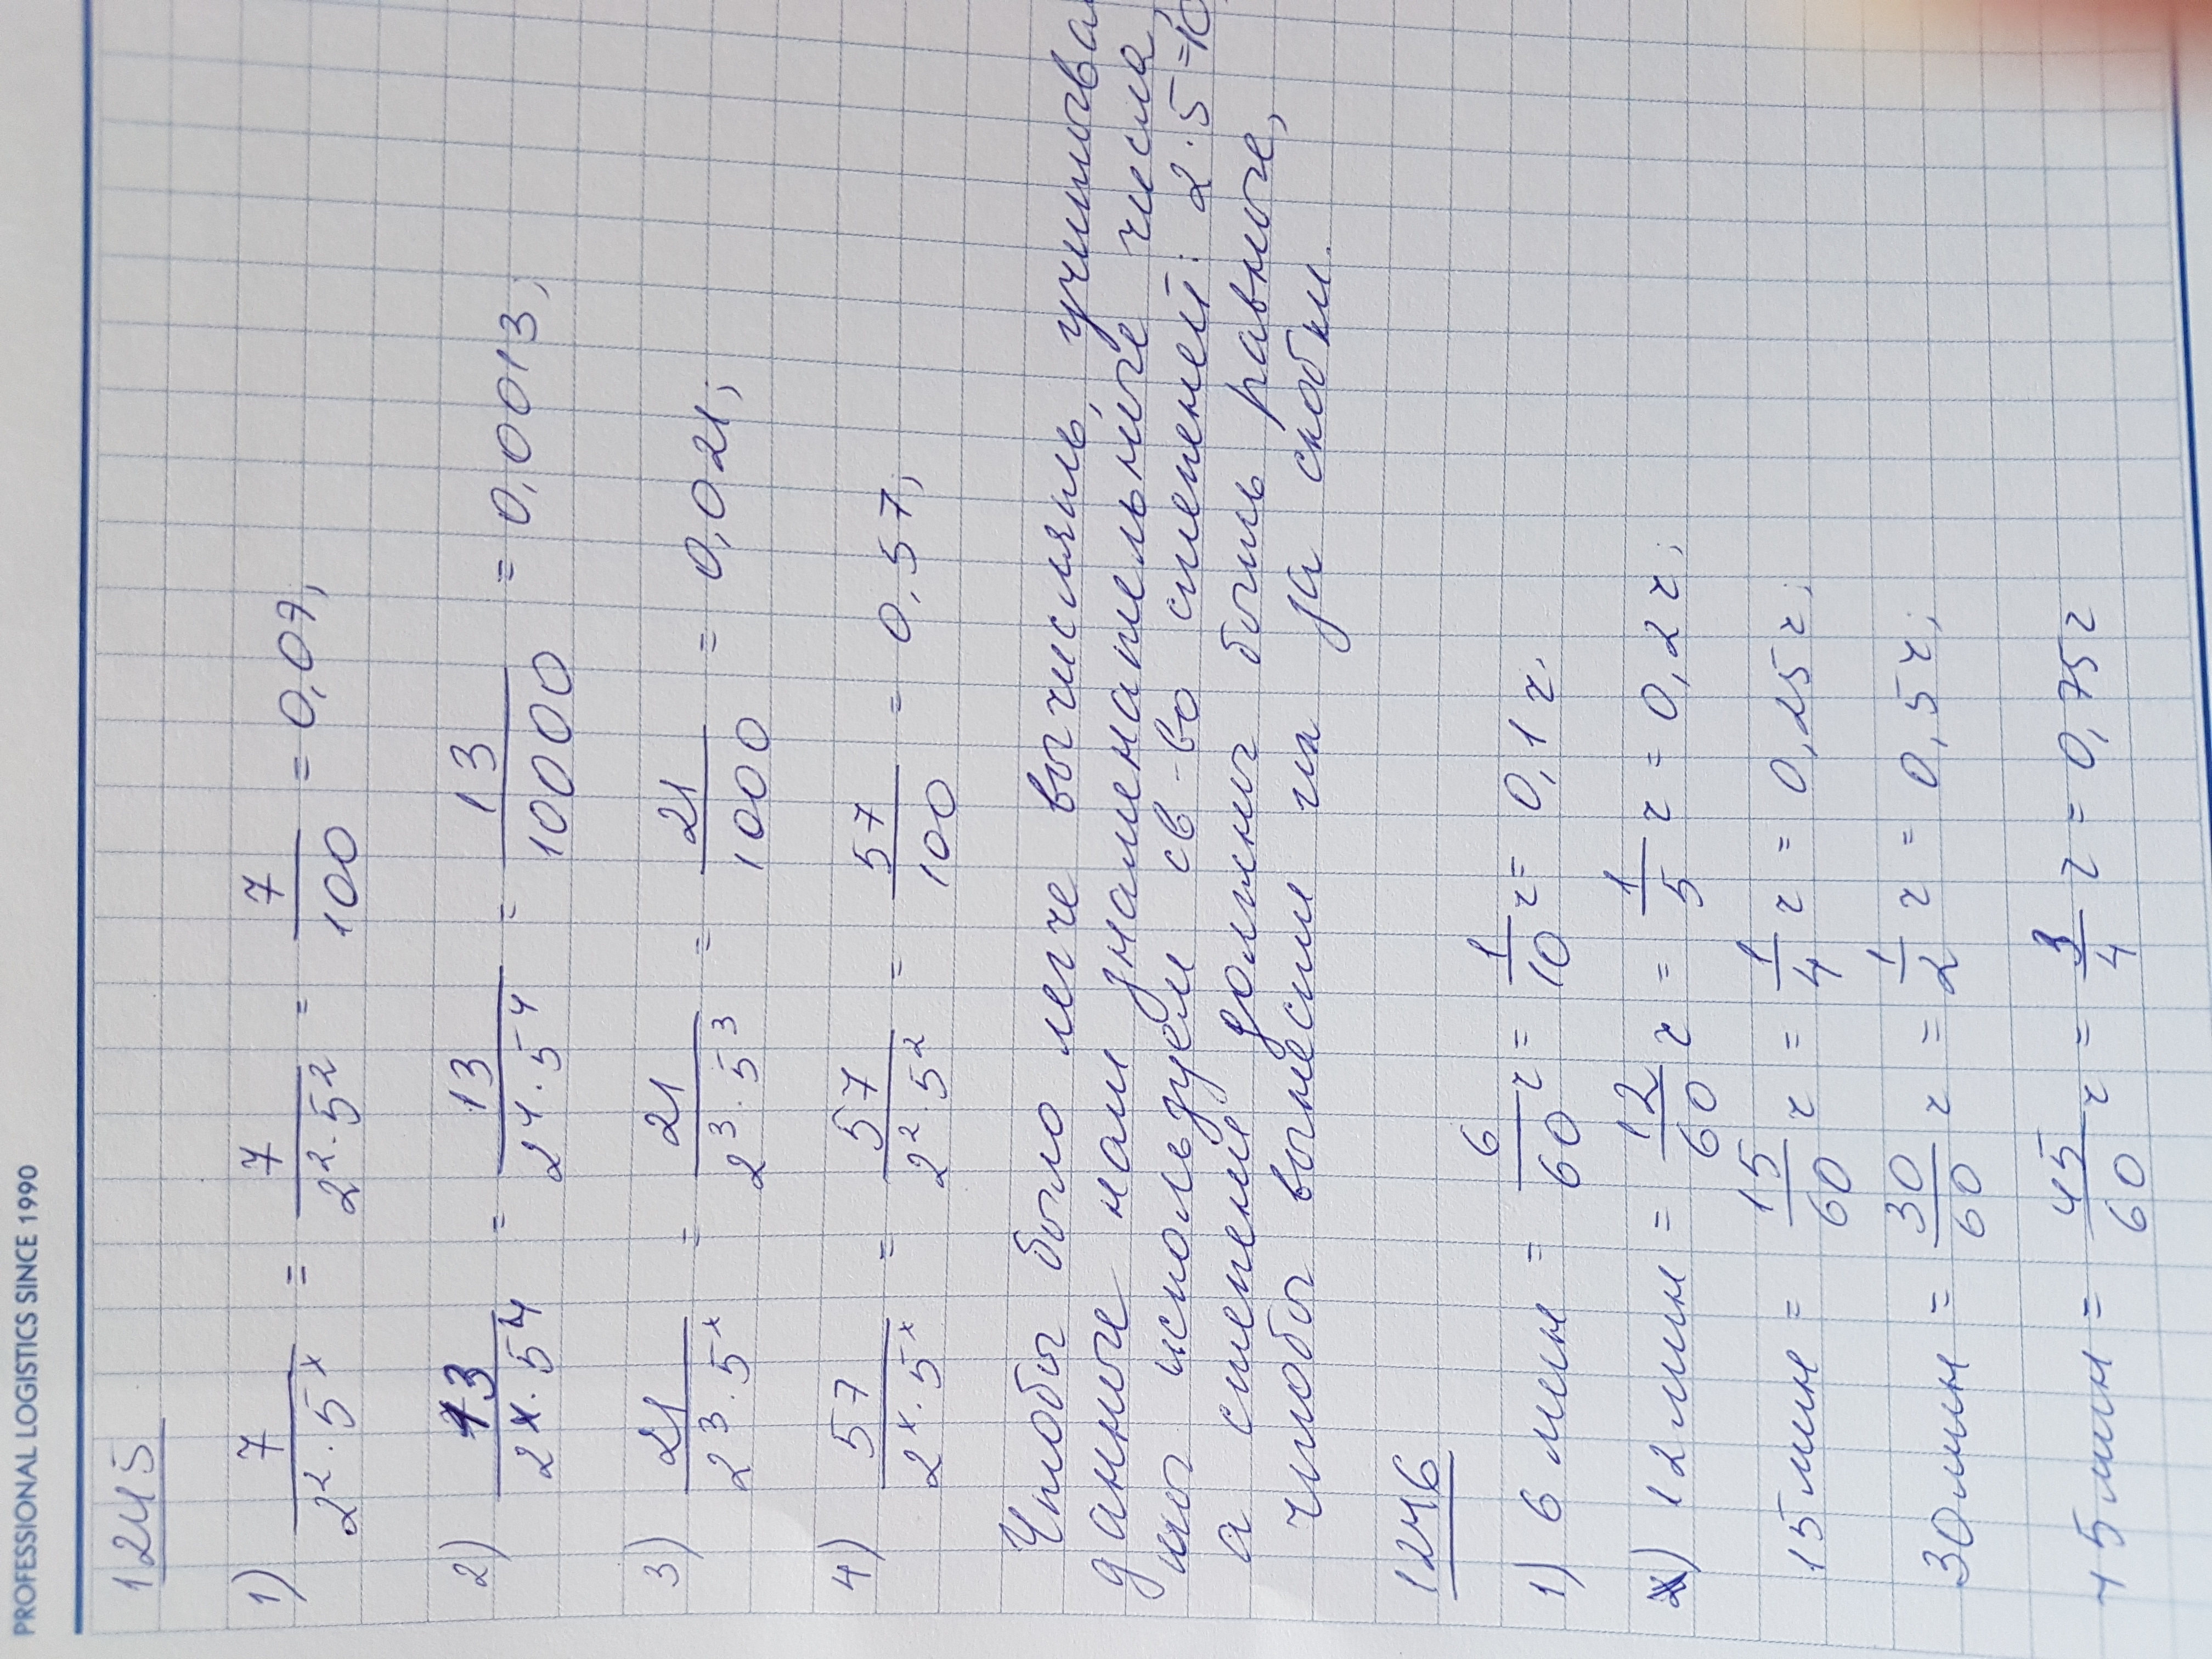 PROFESSIONAL LOGISTICS SINCE 1990
1245
1) 7/(2²·5ˣ) = 7/(2²·5²) = 7/100 = 0,07;
2) 13/(2ˣ·5⁴) = 13/(2⁴·5⁴) = 13/10000 = 0,0013;
3) 21/(2³·5ˣ) = 21/(2³·5³) = 21/1000 = 0,021;
4) 57/(2ˣ·5ˣ) = 57/(2²·5²) = 57/100 = 0,57;
Чтобы было легче вычислять,
данное нам знаменательные числа
мы используем св-во степеней: 2·5=10,
а степени должны быть равные,
чтобы вынести их за скобки.
1246
1) 6 мин = 6/60 ч = 1/10 ч = 0,1 ч.
) 12 мин = 12/60 ч = 1/5 ч = 0,2 ч;
15 мин = 15/60 ч = 1/4 ч = 0,25 ч;
30 мин = 30/60 ч = 1/2 ч = 0,5 ч;
45 мин = 45/60 ч = 3/4 ч = 0,75 ч